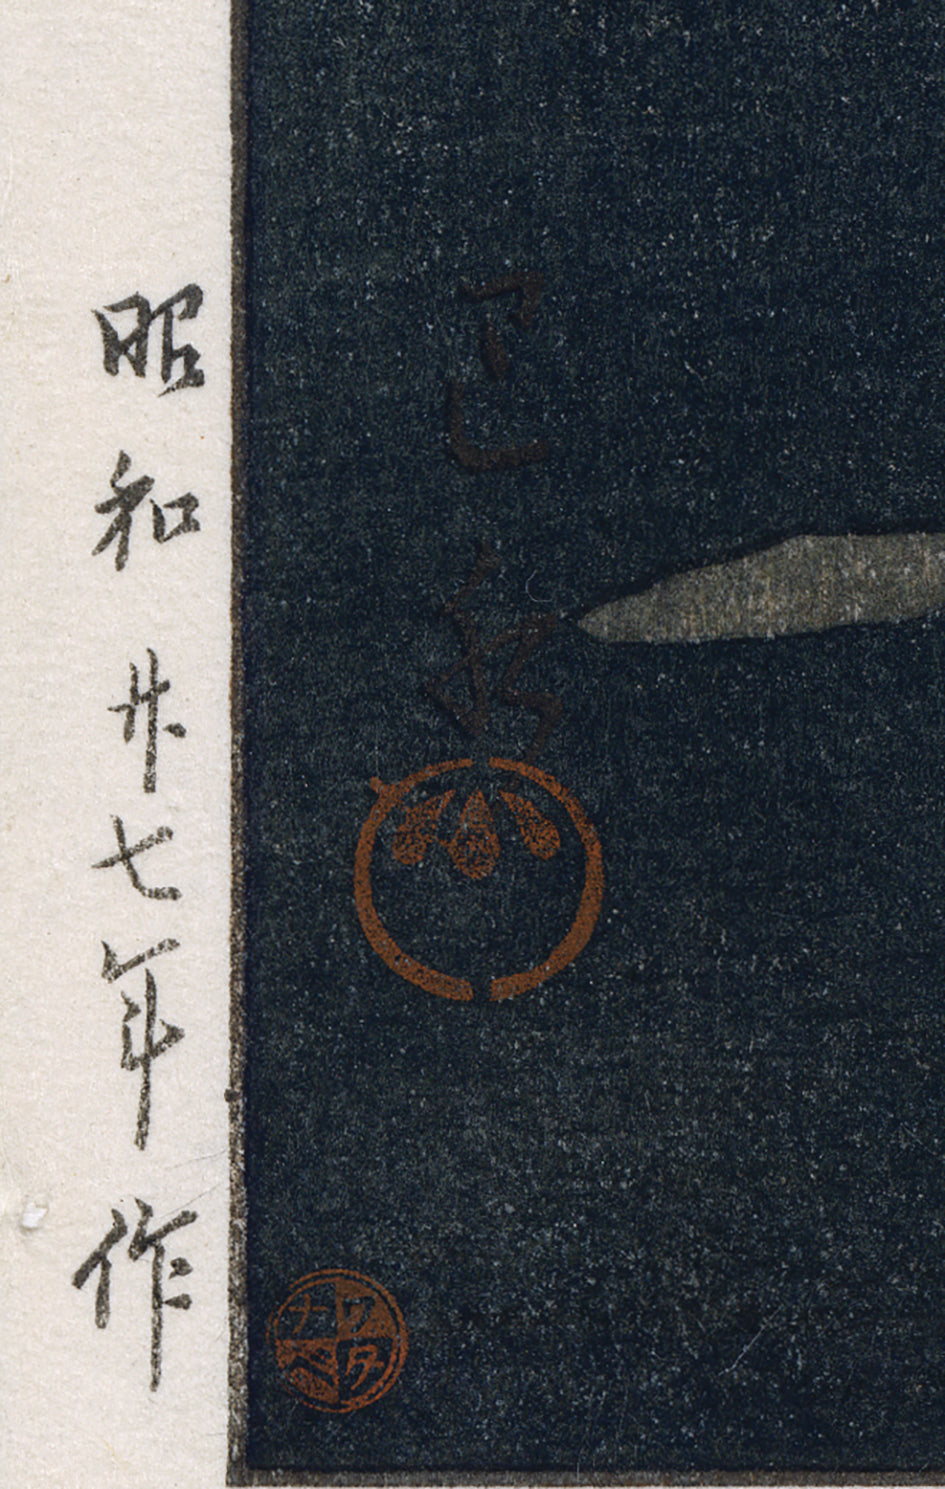 巴水
ワタ
ナベ
昭和廿七年作